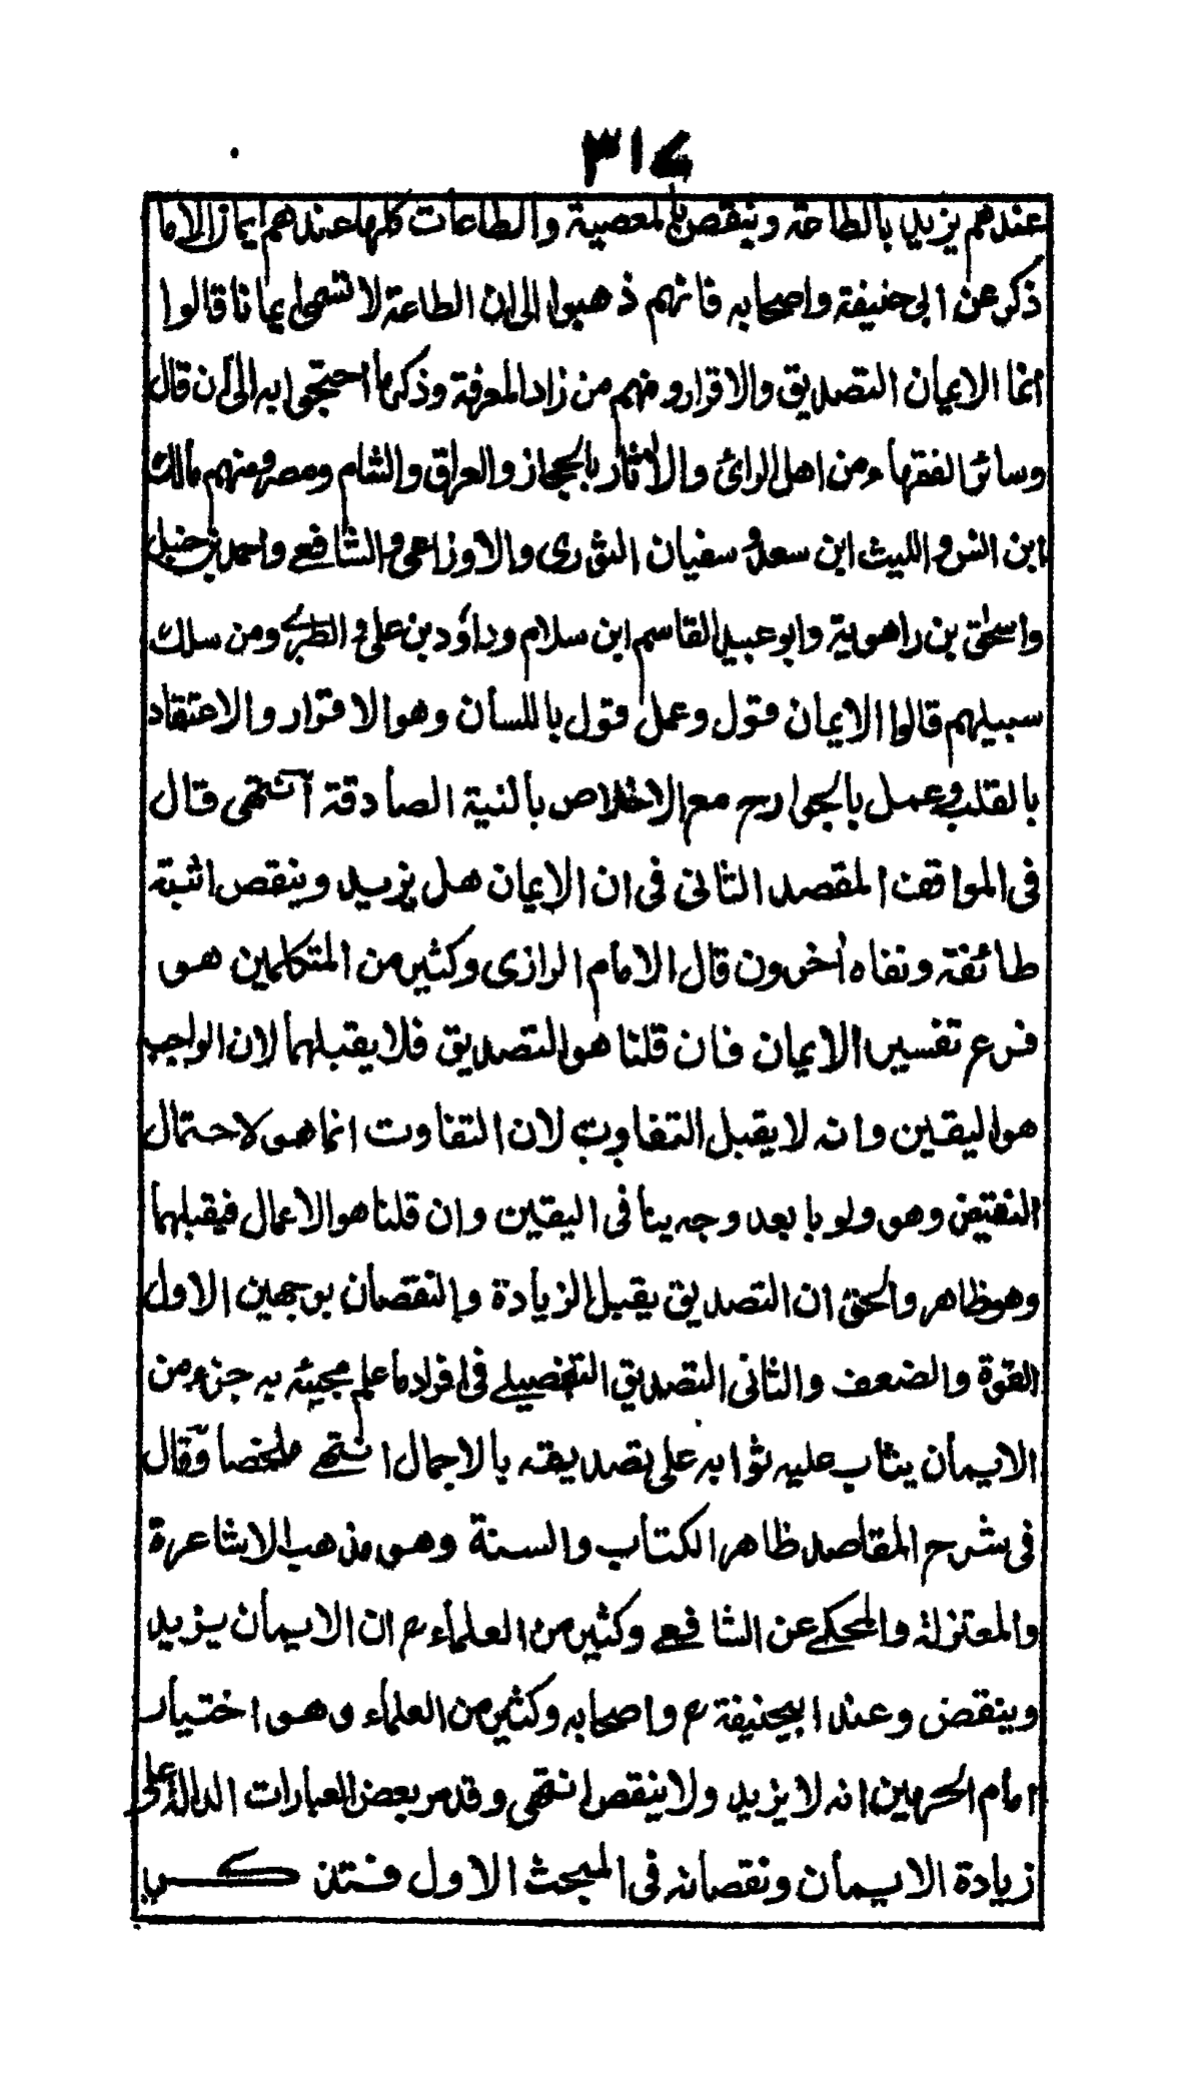 ٣١٤
عندهم يزيد بالطاعة وينقص بالمعصية والطاعات كلها عندهم ايمان الاما
ذكر عن ابى حنيفة واصحابه فانهم ذهبوا الى ان الطاعة لا تسمى ايمانا قالوا
انما الايمان التصديق والاقرار ومنهم من زاد المعرفة وذكر ما احتجوا به الى ان قال
وسائر الفقهاء من اهل الرائ والأثار بالحجاز والعراق والشام ومصر ومنهم مالك
ابن انس والليث ابن سعد وسفيان الثورى والاوزاعى والشافعے واحمد بن حنبل
واسحٰق بن راهوية وابو عبيد القاسم ابن سلام وداؤد بن على والطبرے ومن سلك
سبيلهم قالوا الايمان قول وعمل قول باللسأن وهو الاقرار والاعتقاد
بالقلب وعمل بالجوارح مع الاخلاص بألنية الصأدقة انتهى قال
فى المواقف المقصد الثانى فى ان الايمان هل يزيد وينقص اثبته
طائفة ونفاه أخرون قال الامام الرازى وكثير من المتكلمين هو
فرع تفسير الايمان فان قلنا هو التصديق فلا يقبلهما لان الواجب
هو اليقين وانه لا يقبل التفاوت لان التفاوت انما هو لاحتمال
النقيض وهو ولو بابعد وجه ينأفى اليقين وان قلنا هو الاعمال فيقبلهما
وهو ظاهر والحق ان التصديق يقبل الزيأدة والنقصان بوجهين الاول
القوة والضعف والثانى التصديق التفصيلے فى افراد ما علم مجيئه به جزء من
الايمأن يثاب عليه ثوابه على تصديقه بألاجمال انتهے ملخصأ وقال
فى شرح المقاصد ظاهر الكتأب والسنة وهو مذهب الاشاعرة
والمعتزلة والمحكے عن الشافعے وكثير من العلمأء ان الايمان يزيد
وينقص وعند ابيحنيفة واصحابه وكثير من العلماء وهو اختيار
امأم الحرمين انه لا يزيد ولا ينقص انتهى وقد مر بعض العبارات الدالة على
زيادة الايمأن ونقصانه فى المبحث الاول فتذكر